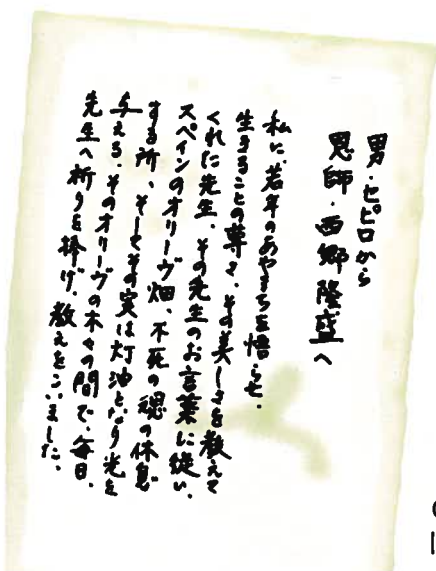 男・ピピロから
恩師・西郷隆盛へ
私に、若年のあやまちを悟らせ、
生きることの尊さ、その美しさを教えて
くれた先生、その先生のお言葉に従い、
スペインのオリーヴ畑、不死の魂の休息
する所、そしてその実は灯油となり光を
与える、そのオリーヴの木々の間で、毎日、
先生へ祈りを捧げ、教えをこいました。